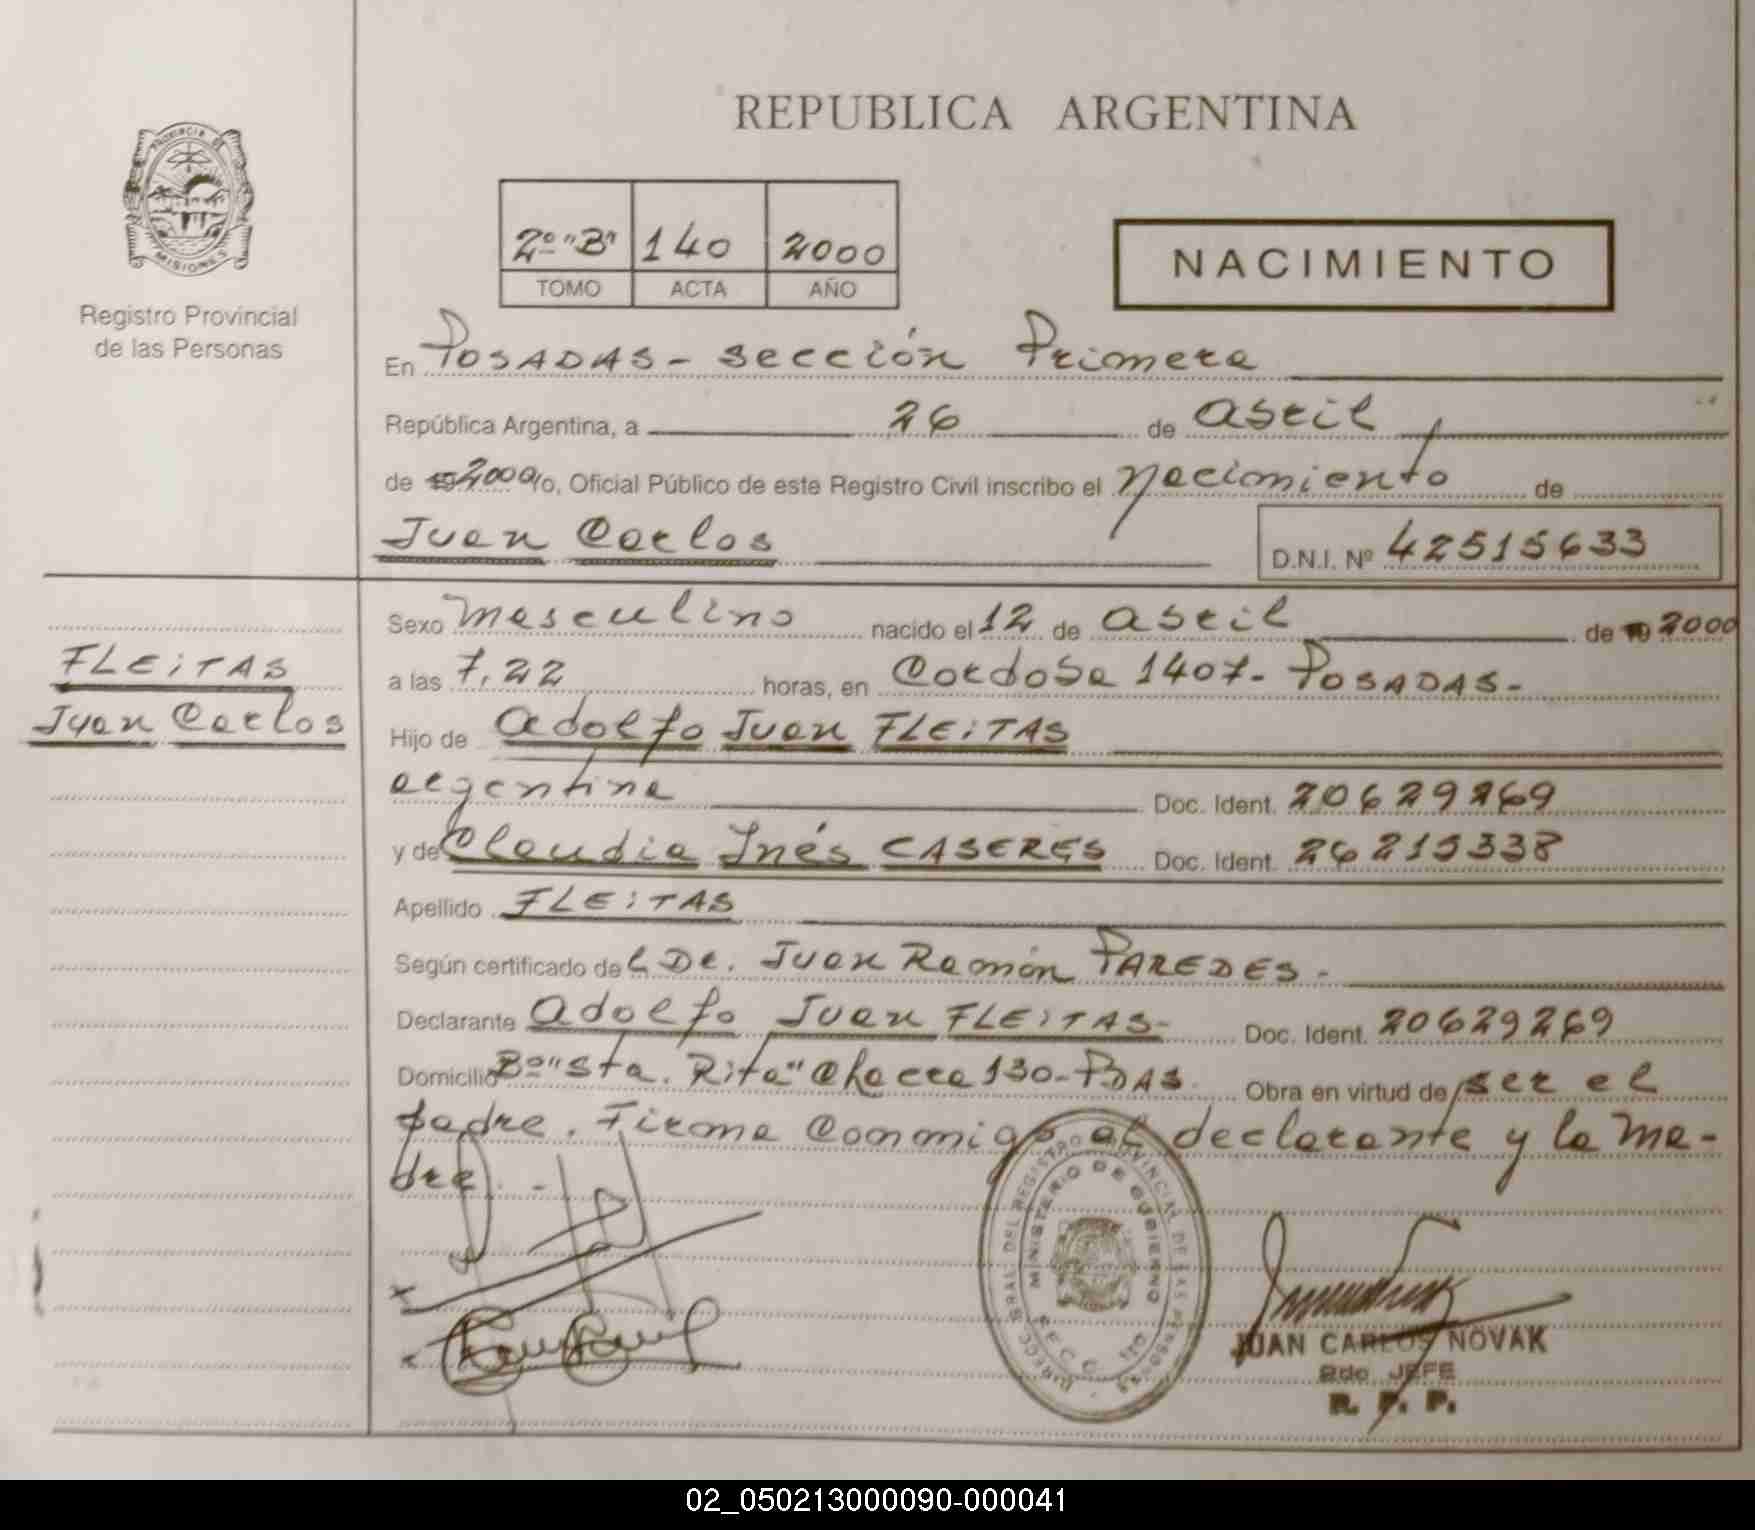 REPUBLICA ARGENTINA
PROVINCIA DE MISIONES
Registro Provincial
de las Personas
2º "B" 140 2000
TOMO ACTA AÑO
NACIMIENTO
En POSADAS - sección Primera
República Argentina, a 26 de abril
de 19 2000 Yo, Oficial Público de este Registro Civil inscribo el nacimiento de
Juan Carlos
D.N.I. Nº 42515633
Sexo masculino nacido el 12 de abril de 19 2000
FLEITAS
Juan Carlos
a las 7,22 horas, en Cordoba 1407 - POSADAS -
Hijo de Adolfo Juan FLEITAS
argentina Doc. Ident. 20629269
y de Claudia Inés CASERES Doc. Ident. 26215338
Apellido FLEITAS
Según certificado del Dr. Juan Ramón PAREDES -
Declarante Adolfo Juan FLEITAS - Doc. Ident. 20629269
Domicilio Bº "Sta. Rita" Chacra 130 - PDAS. Obra en virtud de ser el
padre. Firma conmigo el declarante y la ma-
dre. -
REGISTRO PROVINCIAL DE LAS PERSONAS
MINISTERIO DE GOBIERNO
JUAN CARLOS NOVAK
2do JEFE
R. P. P.
02_050213000090-000041